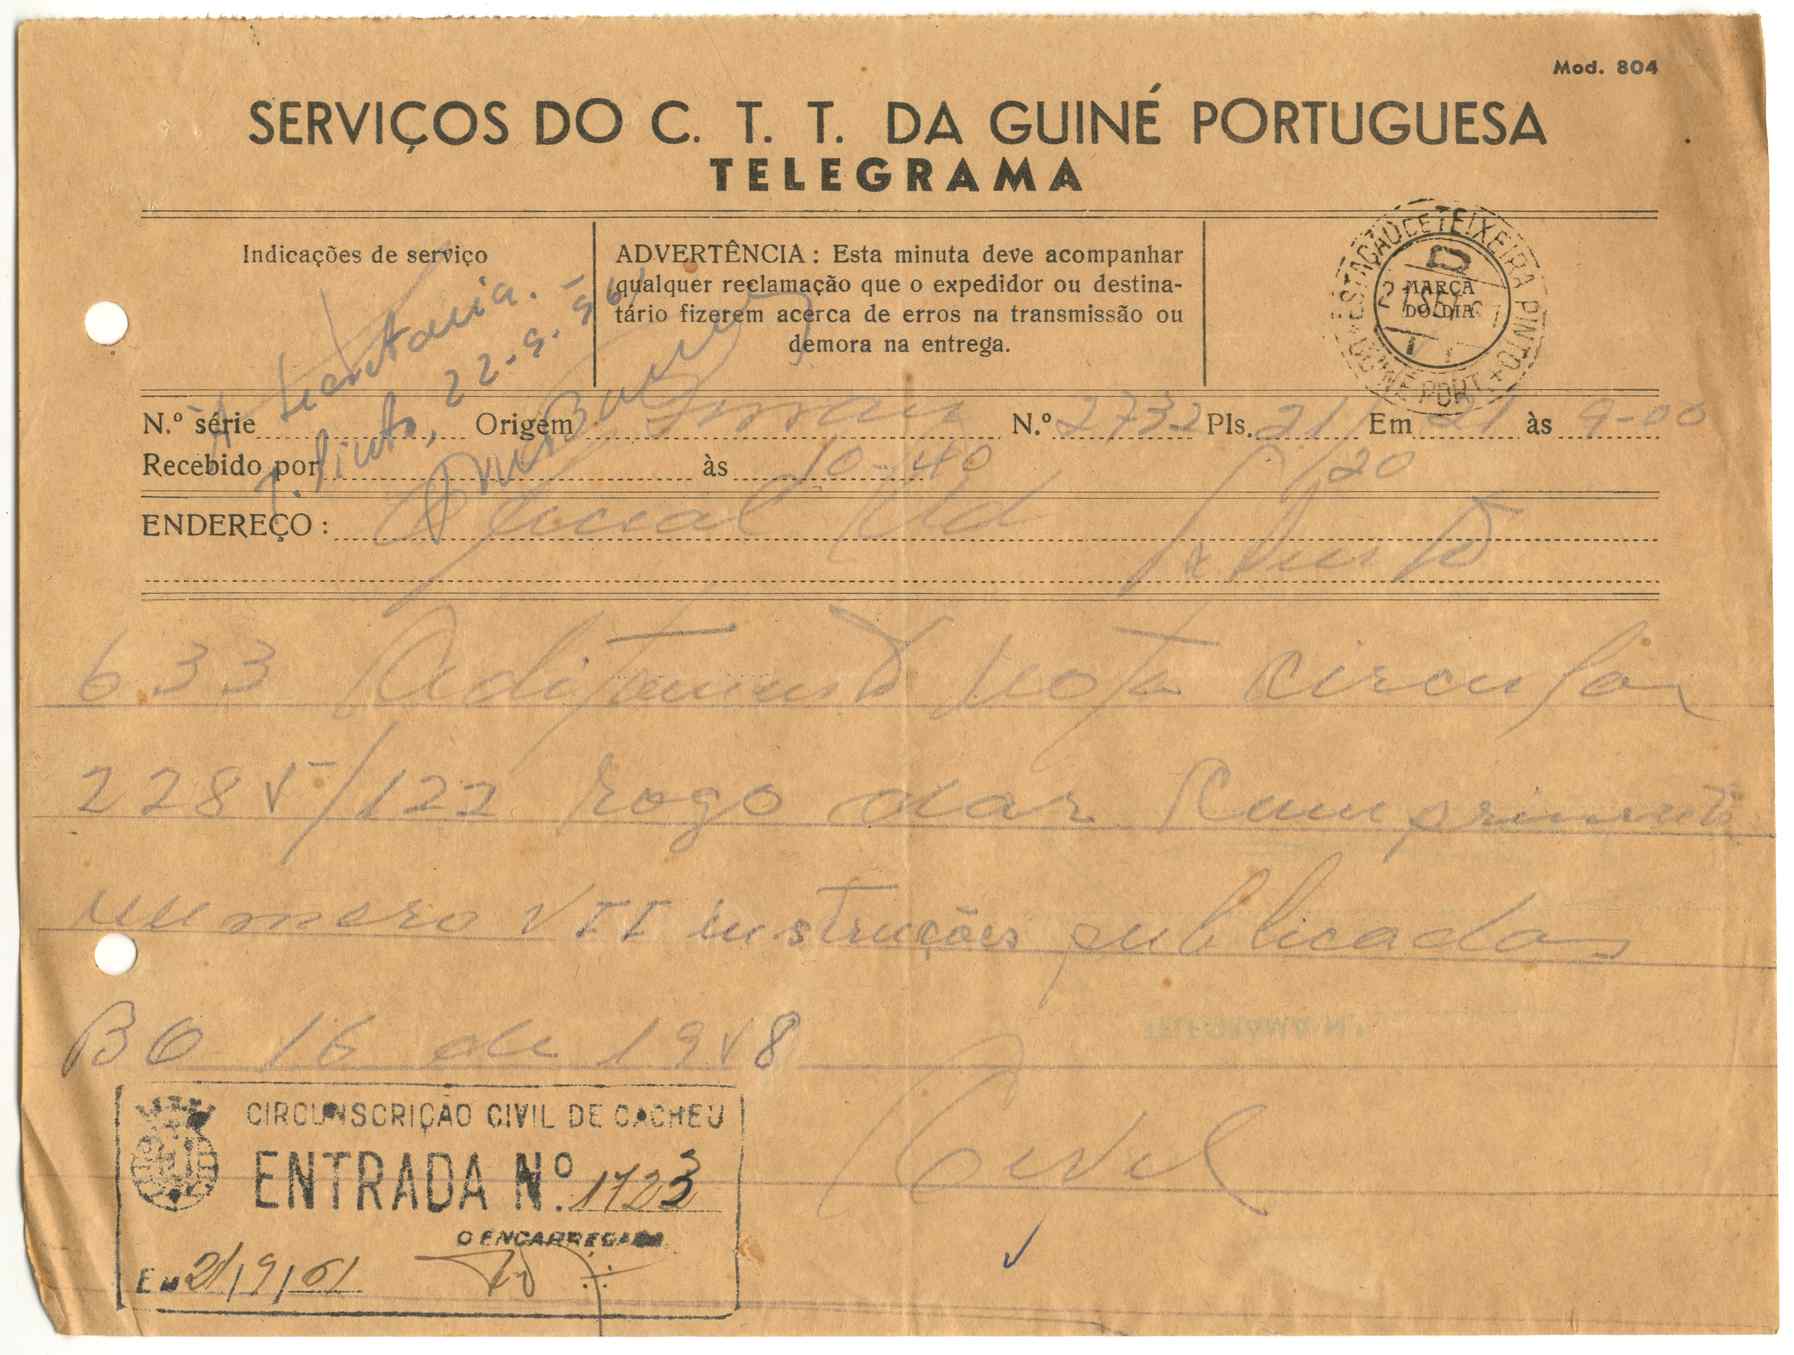 Mod. 804
SERVIÇOS DO C. T. T. DA GUINÉ PORTUGUESA
TELEGRAMA
Indicações de serviço
ADVERTÊNCIA : Esta minuta deve acompanhar
qualquer reclamação que o expedidor ou destina-
tário fizerem acerca de erros na transmissão ou
demora na entrega.
ESTAÇÃO CE TEIXEIRA PINTO
MARCA
DO DIA
GUINÉ PORT.
À Secretaria.
T. Pinto, 22-9-961
N.º série Origem Bissau N.º 2732 Pls. 21 Em 21 às 9-00
Recebido por às 10-40 20
ENDEREÇO : Oficial Ad
Pinto
633 Aditamento nota circular
2285/122 rogo dar cumprimento
numero VII instruções publicadas
BO 16 de 1958
Civil
CIRCUNSCRIÇÃO CIVIL DE CACHEU
ENTRADA N.º 1723
O ENCARREGADO
Em 21/9/61